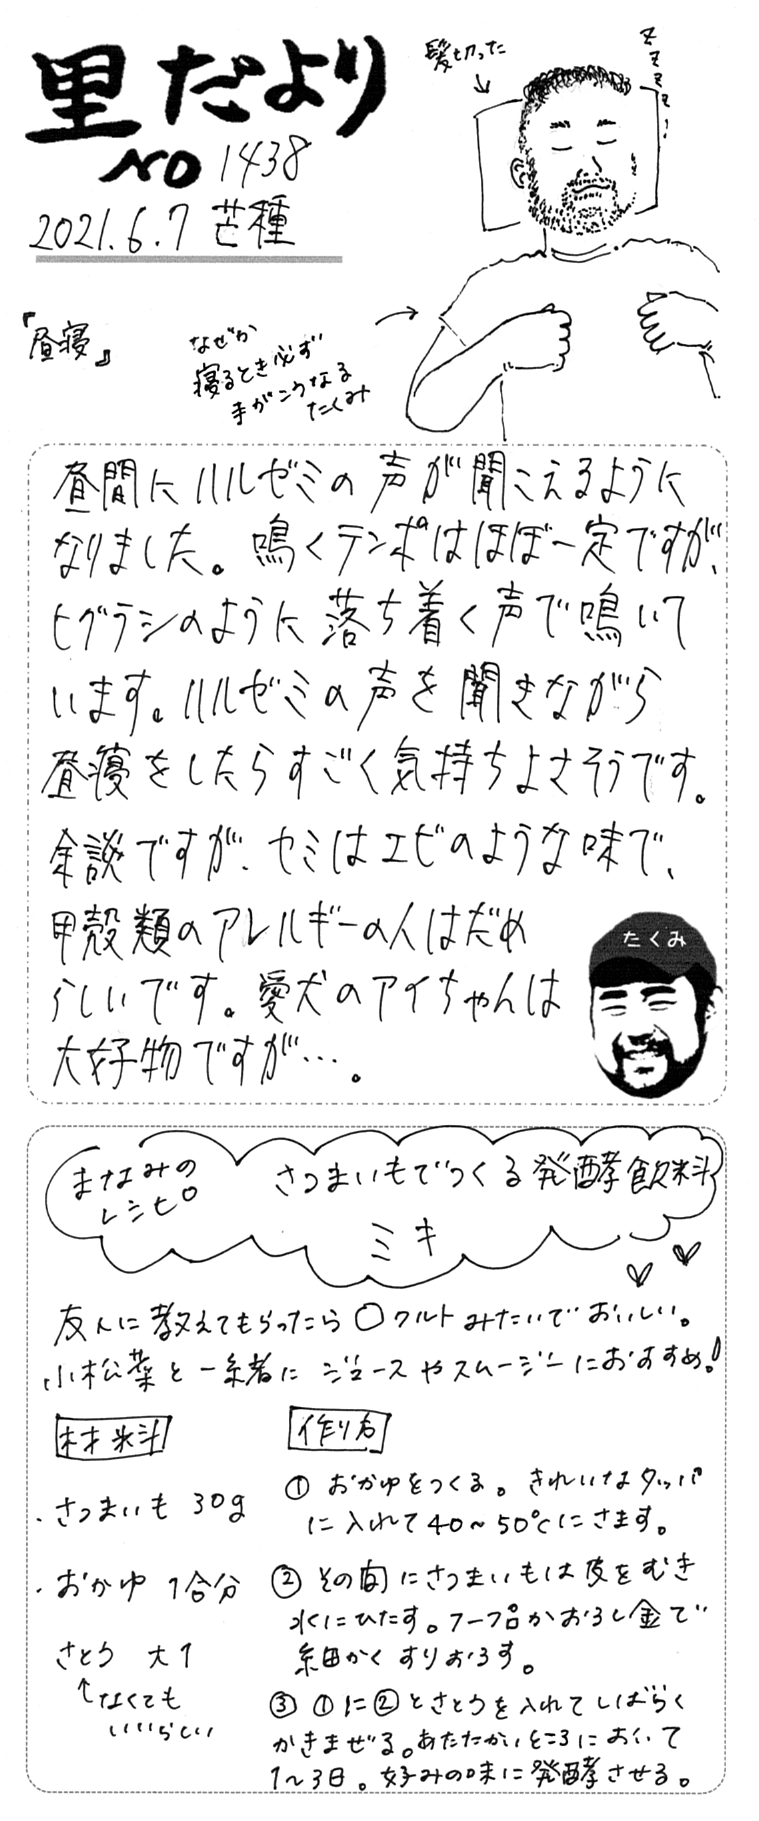 里だより
No 1438
2021.6.7 芒種
髪切った
zzzzz!
『昼寝』
なぜか
寝るとき必ず
手がこうなる
たくみ
昼間にハルゼミの声が聞こえるように
なりました。鳴くテンポはほぼ一定ですが、
ヒグラシのように落ち着く声で鳴いて
います。ハルゼミの声を聞きながら
昼寝をしたらすごく気持ちよさそうです。
余談ですが、セミはエビのような味で、
甲殻類のアレルギーの人はだめ
らしいです。愛犬のアイちゃんは
大好物ですが…。
たくみ
まなみの
レシピ
さつまいもでつくる発酵飲料
ミキ
友人に教えてもらったら〇クルトみたいでおいしい。
小松菜と一緒にジュースやスムージーにおすすめ!
材料
・さつまいも 30g
・おかゆ 1合分
さとう 大1
↑なくても
いいらしい
作り方
① おかゆをつくる。きれいなタッパ
に入れて40~50℃にさます。
② その間にさつまいもは皮をむき
水にひたす。フープロかおろし金で
細かくすりおろす。
③ ①に②とさとうを入れてしばらく
かきまぜる。あたたかいところにおいて
1~3日。好みの味に発酵させる。